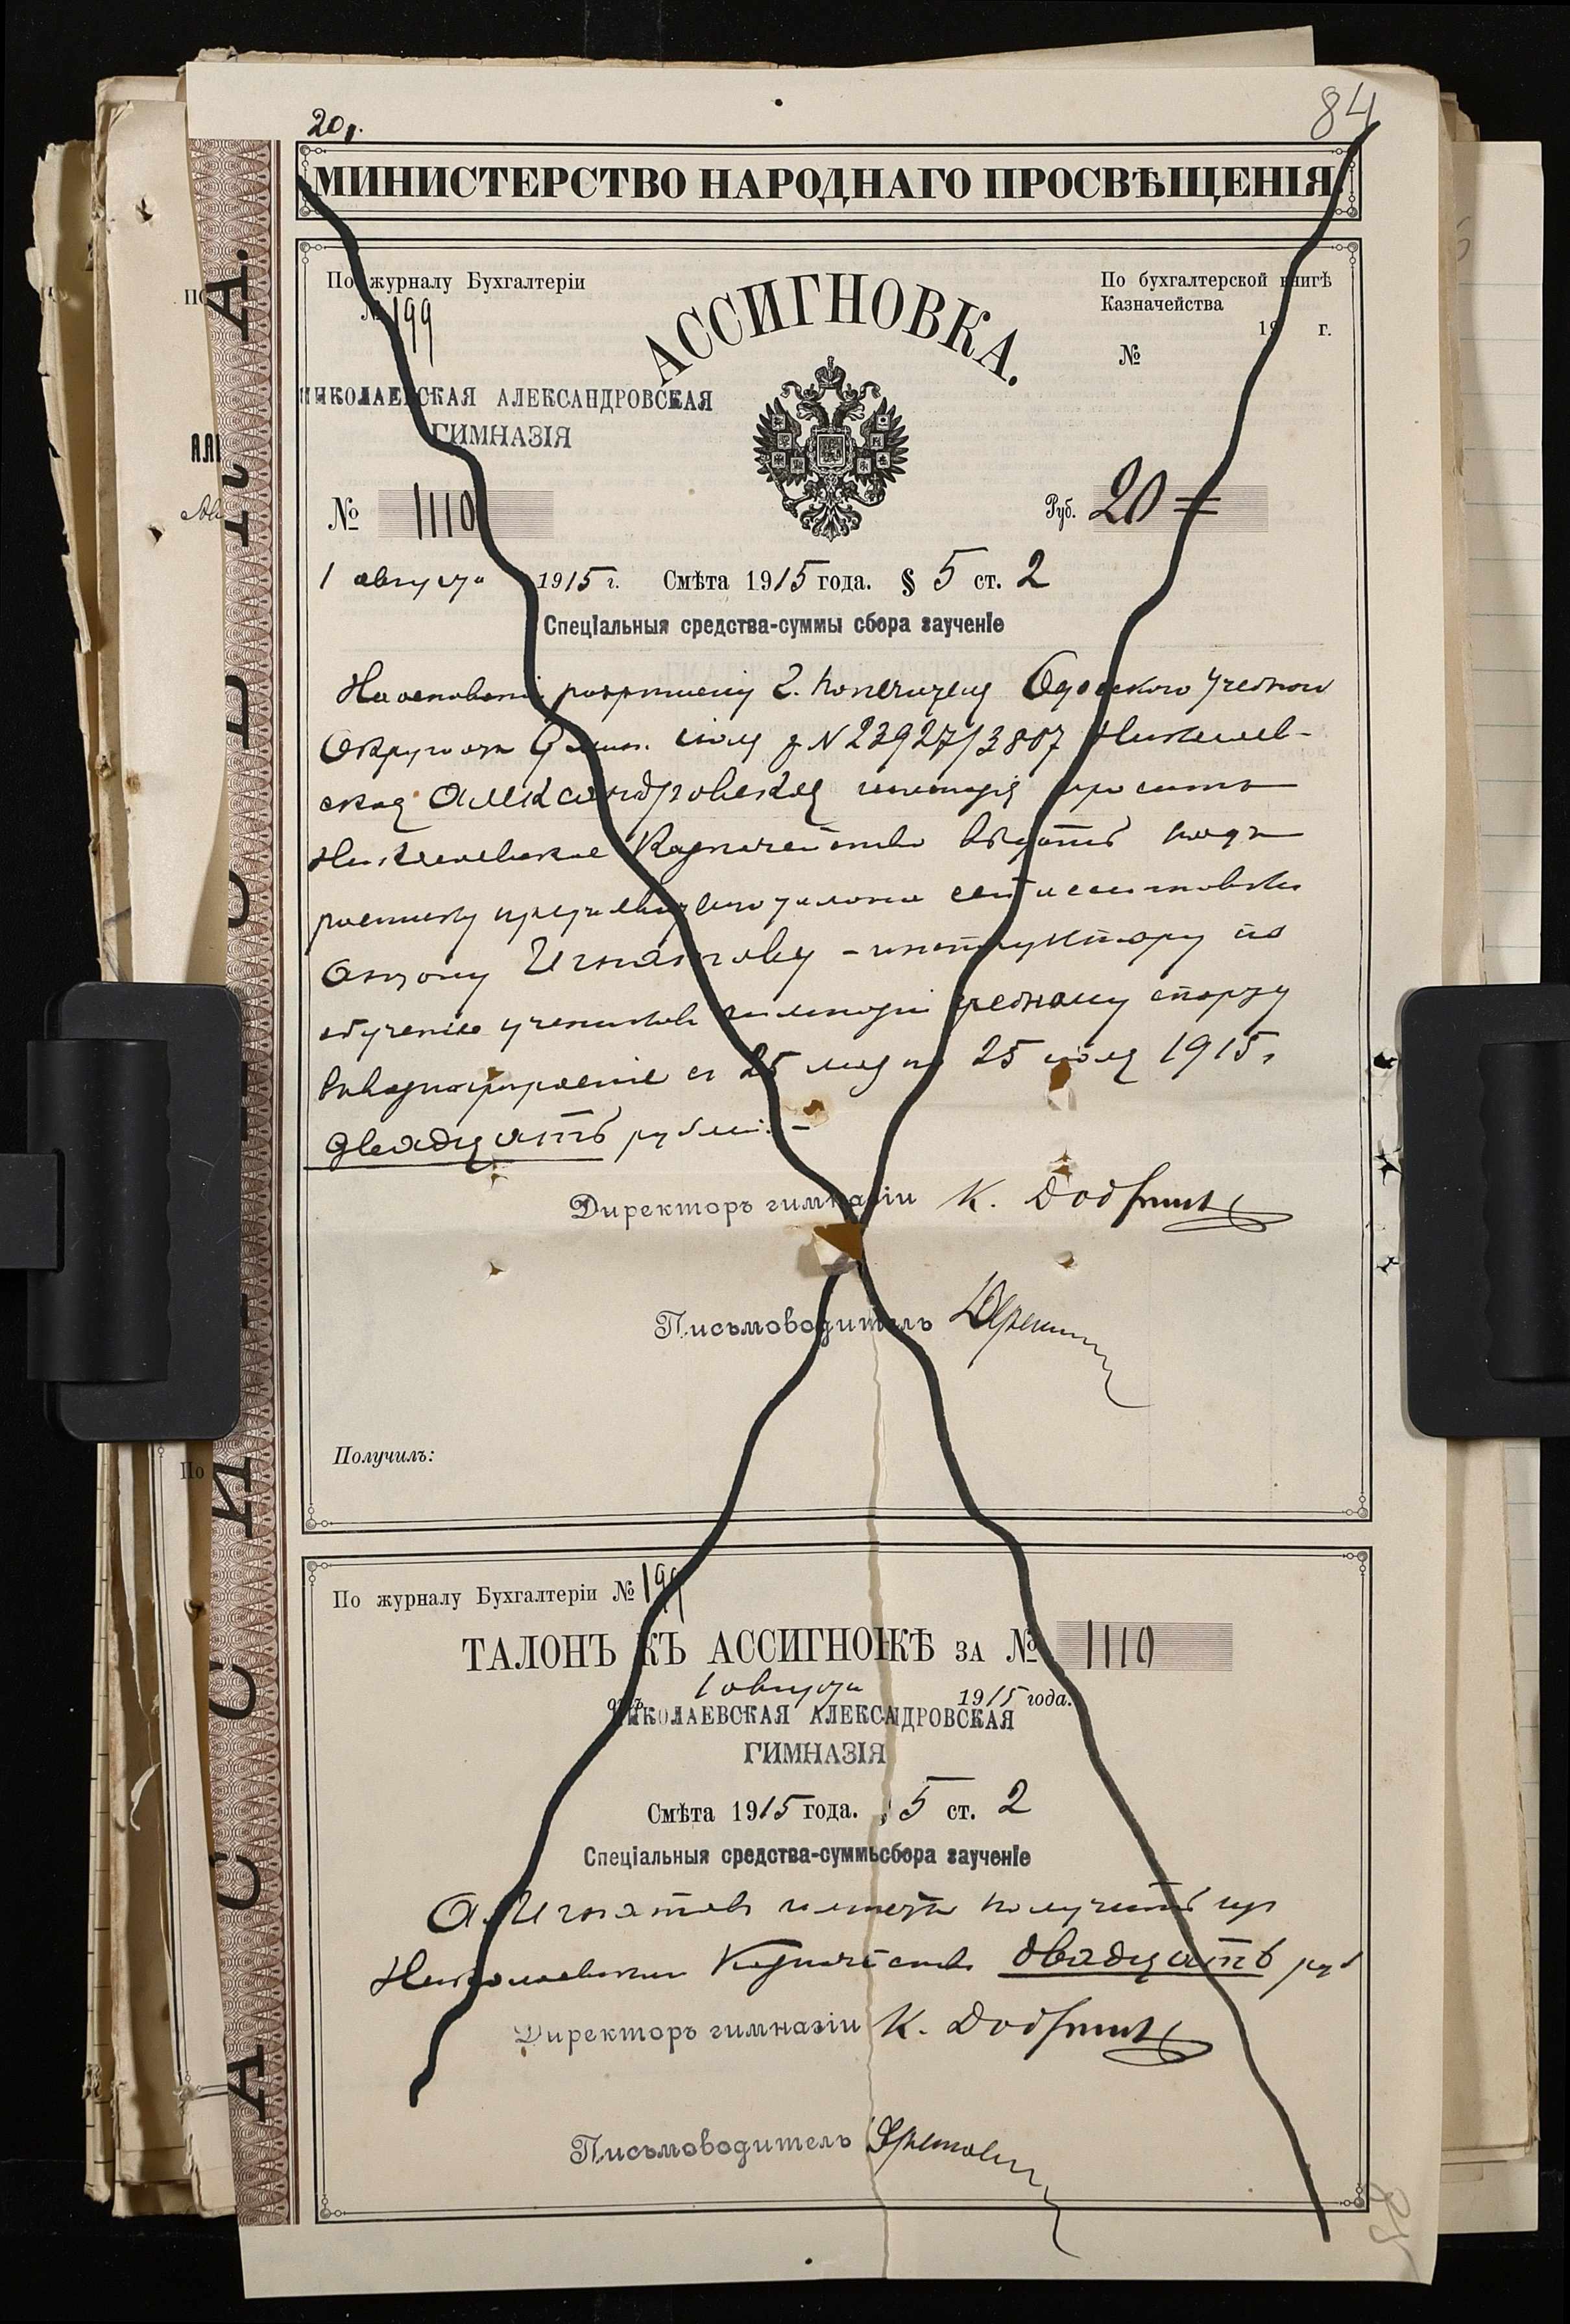 20 р.
84
МИНИСТЕРСТВО НАРОДНАГО ПРОСВѢЩЕНІЯ.
По журналу Бухгалтеріи
№ 199
АССИГНОВКА.
По бухгалтерской книгѣ
Казначейства
19 г.
№
НИКОЛАЕВСКАЯ АЛЕКСАНДРОВСКАЯ
ГИМНАЗІЯ
№ 1110
Руб. 20 =
1 августа 1915 г. Смѣта 1915 года. § 5 ст. 2
Спеціальныя средства-суммы сбора заученіе
На основаніи разрѣшенія Г. Попечителя Одесскаго Учебнаго
Округа отъ 9 июля за N 23927/3807 Николаев-
ская Александровская гимназія проситъ
Николаевское Казначейство выдать подъ
росписку предъявителю талона сей ассигновки
Антону Игнатову - инструктору по
обученію учениковъ гимназіи гребному спорту
вознагражденіе съ 25 мая по 25 июля 1915 г.
двадцать рублей. -
Директоръ гимназіи К.
Письмоводитель
Получилъ:
По журналу Бухгалтеріи № 199
ТАЛОНЪ КЪ АССИГНОВКѢ ЗА № 1110
отъ 1 августа 1915 года.
НИКОЛАЕВСКАЯ АЛЕКСАНДРОВСКАЯ
ГИМНАЗІЯ
Смѣта 1915 года. § 5 ст. 2
Спеціальныя средства-суммы сбора заученіе
А. Игнатов имѣетъ получить изъ
Николаевскаго Казначейства двадцать руб
Директоръ гимназіи К.
Письмоводитель
АССИГ